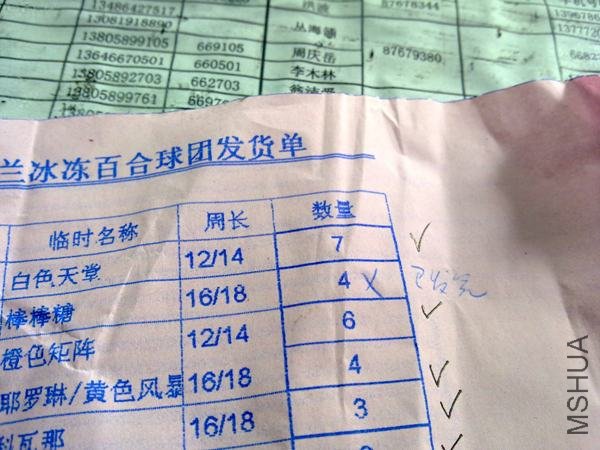 13486427517 洪波 87678344
13081918890
丛海
13805899105 669105 周庆岳 87679380
13646670501 660501 李木林
13805892703 662703
13805899761
兰冰冻百合球团发货单
临时名称 周长 数量
白色天堂 12/14 7
棒棒糖 16/18 4
橙色矩阵 12/14 6
耶罗琳/黄色风暴 16/18 4
科瓦那 16/18 3
MSHUA